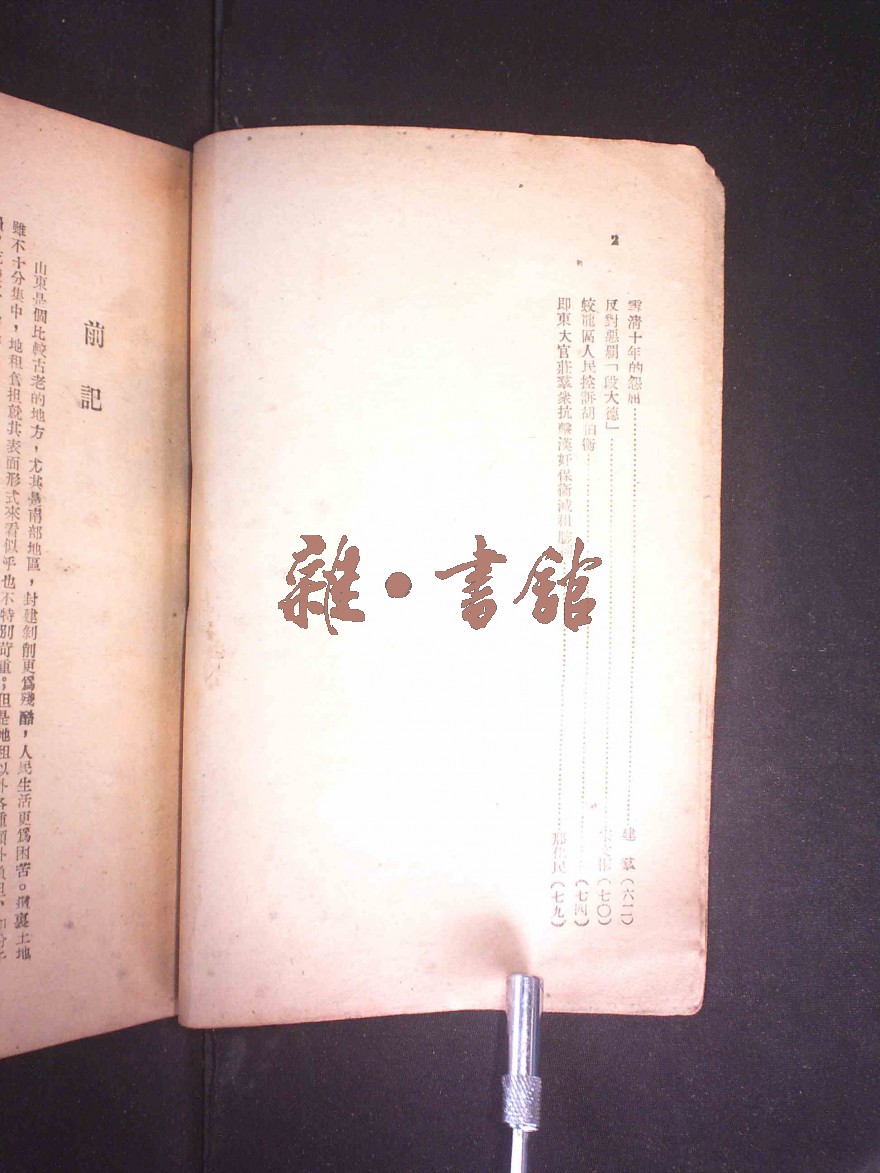 2
雪清十年的怨屈……建羣(六二)
反對惡霸「段大德」……(七〇)
蛟龍區人民控訴胡伯衡……(七四)
即東大官莊羣衆抗擊漢奸保衛減租……民(七九)
雜·書館
前記
山東是個比較古老的地方,尤其是南部地區,封建剝削更爲殘酷,人民生活更爲困苦。這裏土地
雖不十分集中,地租負担就其表面形式來看似乎也不特別苛重;但是地租以外各種額外負担、